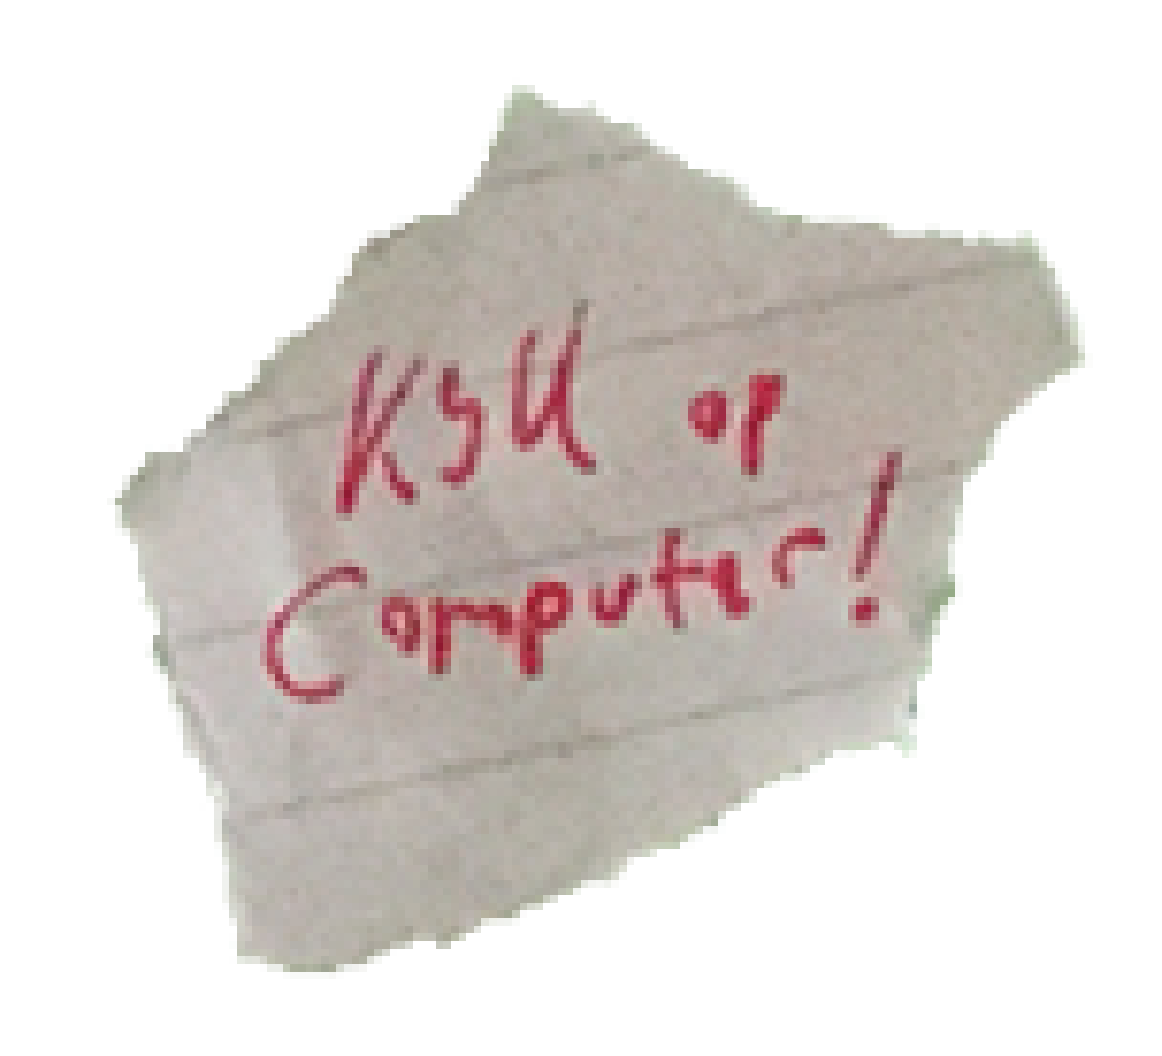 KSU op
Computer!